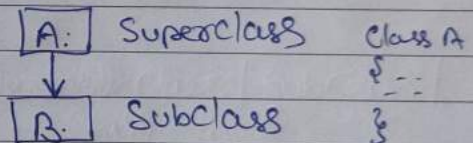 A: Superclass Class A
{ - -
- -
B. Subclass }